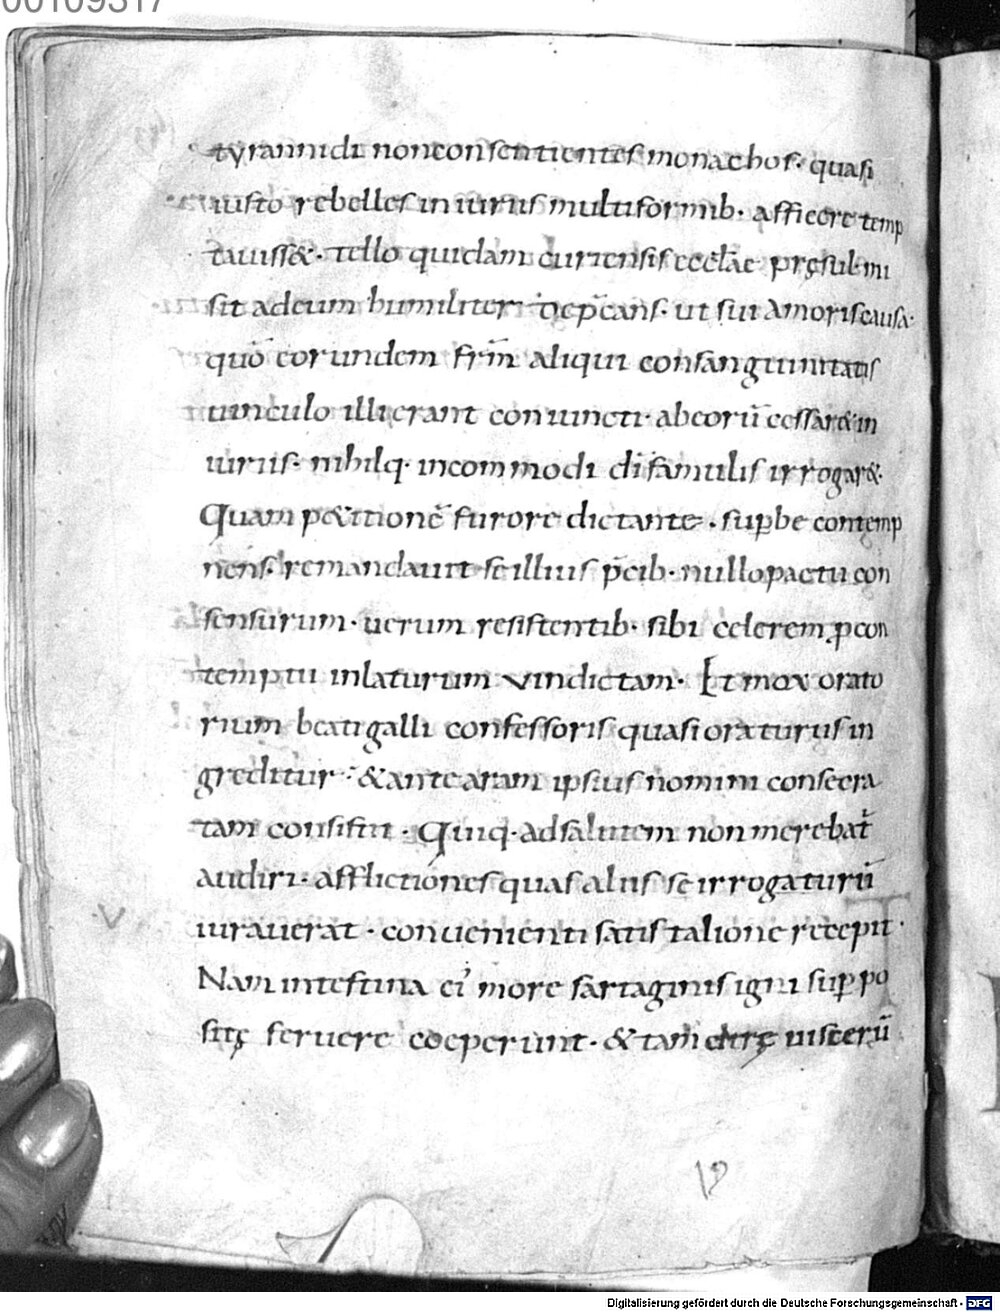 00109317
tyrannidi non consentientes monachos· quasi
iusto rebelles iniuriis multiformib· afficere temp
tauiss&· tello quidam curiensis ecclae pręsul· mi
sit ad eum humiliter dep̄cans· ut sui amoris causa·
quō eorundem fr̄m̄ aliqui consanguinitatis
uinculo illi erant coniuncti· ab eorū cessar& in
iuriis· nihilq· incommodi di famulis irrogar&·
Quam p&itionē furore dictante· supbe contemp
nens· remandauit se illius p̄cib· nullo pactu con
sensurum· uerum resistentib· sibi celerem p con
temptu inlaturum vindictam· Et mox orato
rium beati galli confessoris quasi oraturus in
greditur· & ante aram ipsius nomini consecra
tam consistit· Quiq· ad salutem non merebat̄
audiri· afflictiones quas aliis se irrogaturū
iurauerat· conuenienti satis talione recepit·
Nam intestina ei' more sartaginis igni suppo
sitę feruere coeperunt· & tam dirę uiscerū
Digitalisierung gefördert durch die Deutsche Forschungsgemeinschaft - DFG